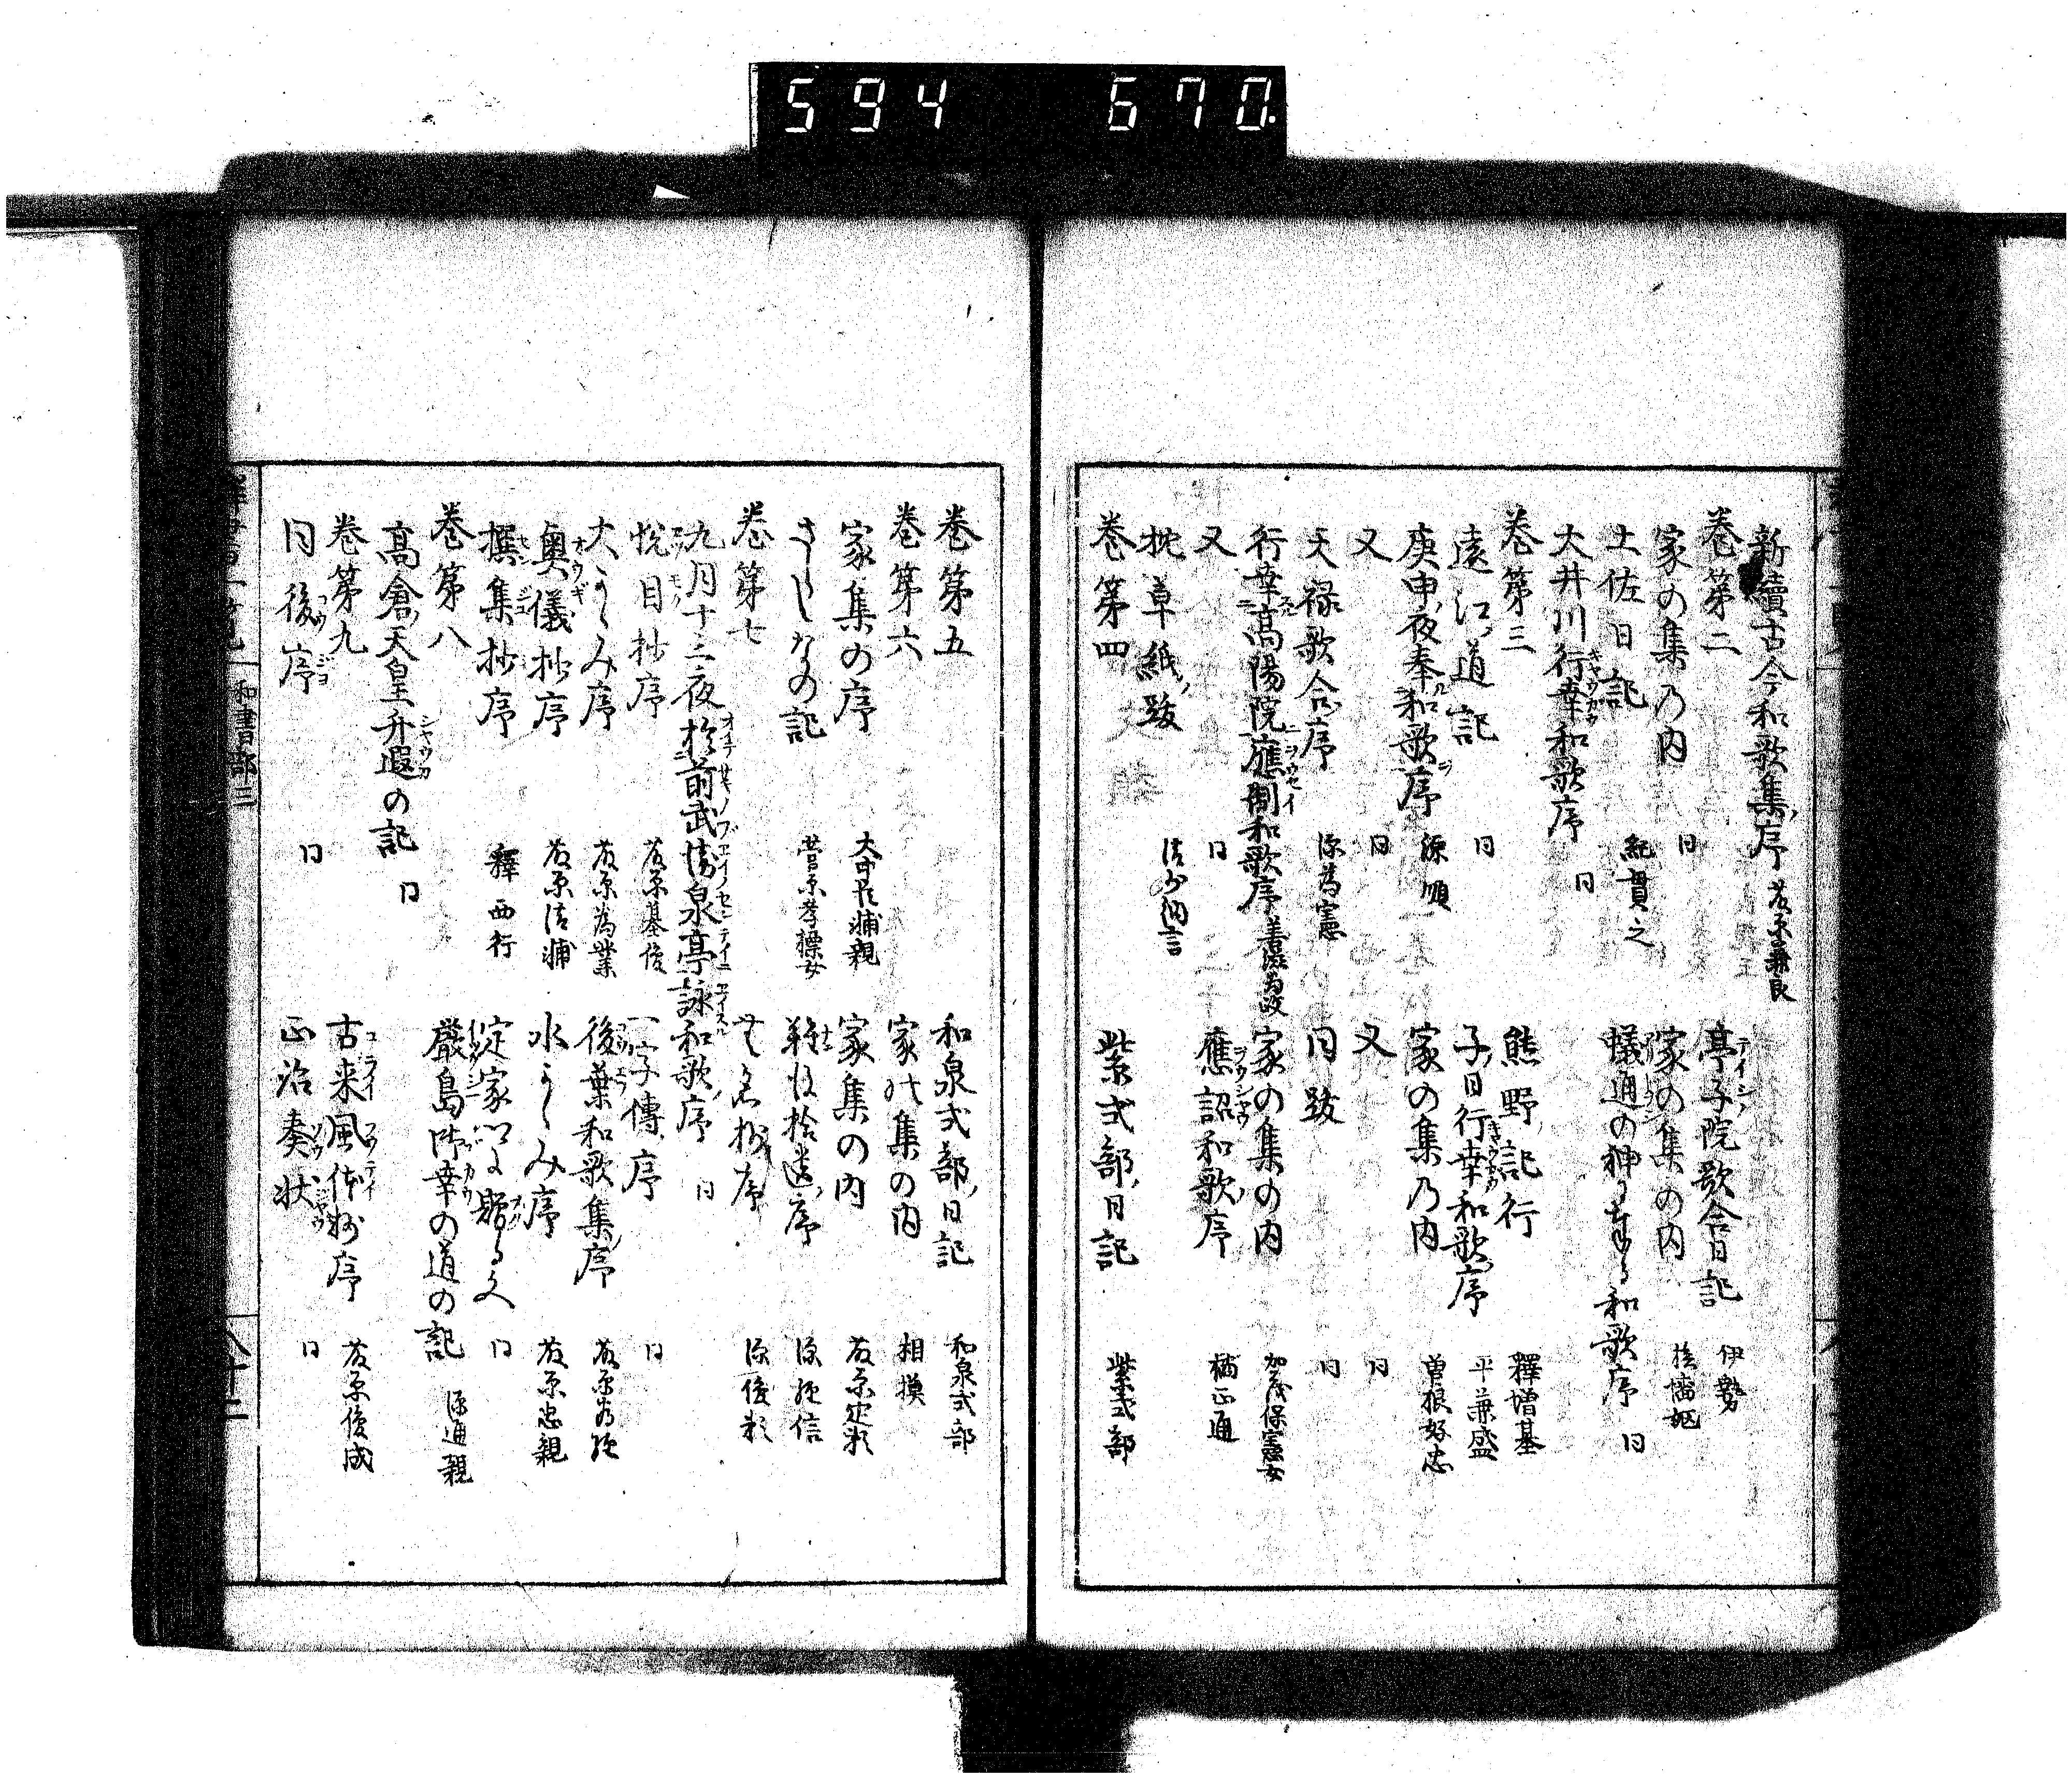 594 670.
新續古今和歌集ノ序 藤原兼良
巻第二
亭子院歌合日記 伊勢
家の集乃内 同
家の集の内 檜垣嫗
土佐日記 紀貫之
蟻通の神に奉る和歌序 同
大井川行幸和歌序 同
巻第三
熊野ノ記行 釋増基
遠江ノ道ノ記 同
子ノ日行幸和歌ノ序 平兼盛
庚申ノ夜奉ル和歌ヲ序 源順
家の集乃内 曽根好忠
又 同
又 同
天禄歌合ノ序 源為憲
同跋 同
行幸高陽院ニ應制和歌序 善滋為政
家の集の内 加茂保憲女
又 同
應詔和歌ノ序 橘正通
枕草紙ノ跋 清少納言
巻第四
紫式部ノ日記 紫式部
巻第五
和泉式部ノ日記 和泉式部
巻第六
家の集の内 相摸
家集の序 大中臣輔親
家集の内 藤原定頼
さらしなの記 菅原孝標女
難後拾遺ノ序 源経信
巻第七
無名抄序 源俊頼
九月十三夜於前武衛泉亭詠和歌ノ序 同
悦目抄序 藤原基俊
一子傳ノ序 同
大かゝみ序 藤原為業
後葉和歌集ノ序 藤原為経
奥儀抄序 藤原清輔
水かゝみ序 藤原忠親
撰集抄序 釋西行
定家に贈る文 同
巻第八
嚴島御幸の道の記 源通親
高倉ノ天皇升遐の記 同
巻第九
古来風体抄序 藤原俊成
同後序 同
正治奏状 同
和書部三
八十二